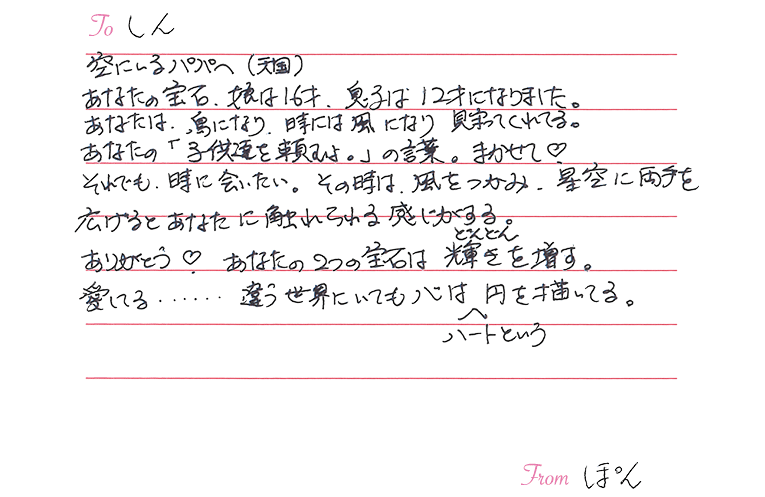 To しん
空にいるパパへ(天国)
あなたの宝石、娘は16才、息子は12才になりました。
あなたは、鳥になり、時には風になり 見守ってくれてる。
あなたの「子供達を頼むよ。」の言葉。まかせて♡
それでも、時に会いたい。その時は、風をつかみ、星空に両手を
広げるとあなたに触れられる感じがする。
どんどん
ありがとう♡ あなたの2つの宝石は 輝きを増す。
愛してる…… 違う世界にいても心は 円を描いてる。
ハートという
From ぽん